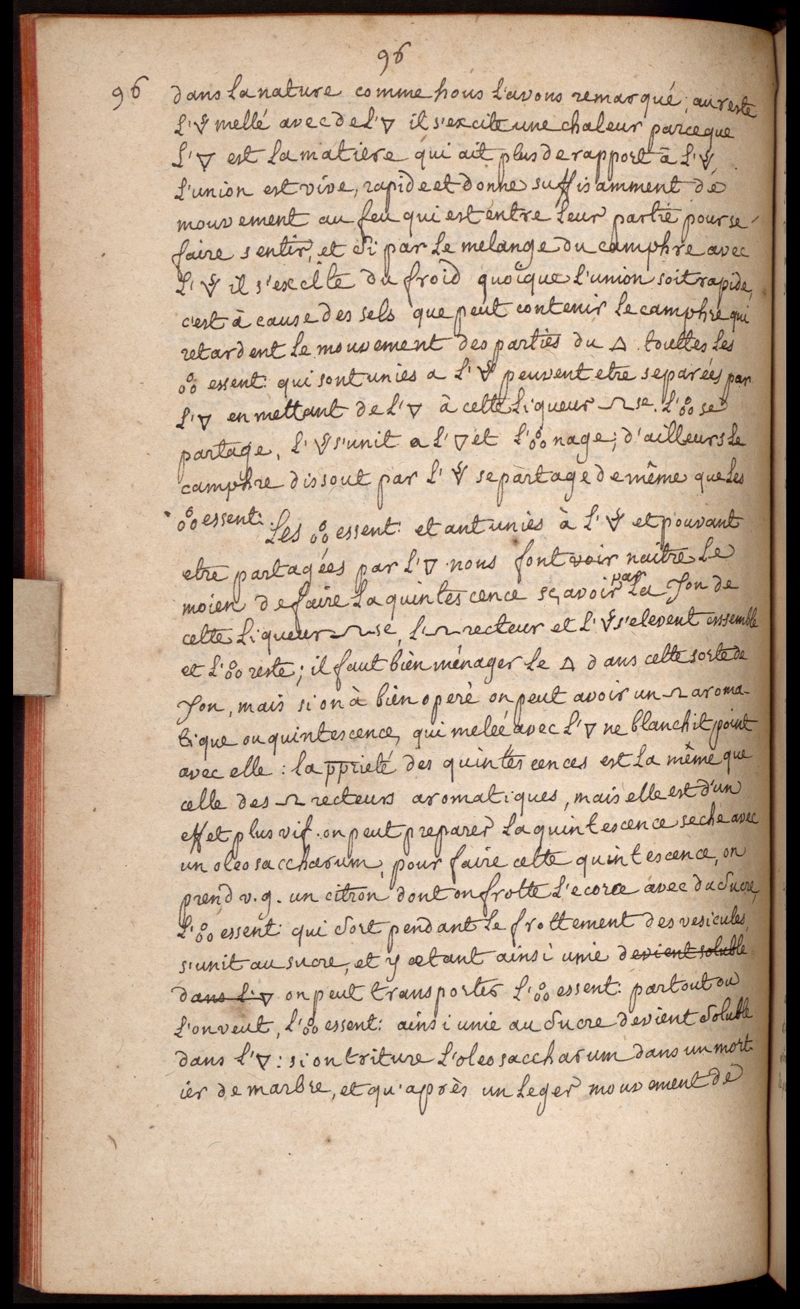 96
96 dans la nature comme nous l'avons remarqué; au reste
l'🜈 mellé avec de l'▽ il s'excite une chaleur parceque
l'▽ est la matiere qui ait plus de rapport à l'🜈.
l'union est vive, rapide et donne suffisamment de
mouvement au feu qui est entre leur partie pour se
faire sentir, et si par le mélange du camphre avec
l'🜈 il s'excite du froid quoique l'union soit rapide,
c'est à cause des sels que peut contenir le camphre qui
retardent le mouvement des parties du △. touttes les
ꝏ essent. qui sont unies a l'🜈 peuvent etre separées par
l'▽ en mettant de l'▽ à cette liqueur ᔐse. l'ꝏ se
partage, l'🜈 s'unit a l'▽ et l'ꝏ nage; d'ailleurs le
camphre dissout par l'🜈 se partage de même que les
ꝏ essent. Les ꝏ essent. etant unies à l'🜈 et pouvant
etre partagées par l'▽ nous font voir naitre le
moien de faire la quintescence sçavoir par la 𝒟on de
cette liqueur ᔐse, l'ᔐ recteur et l'🜈 s'elevent ensemble
et l'ꝏ reste; il faut bien ménager le △ dans cette sorte de
𝒟on, mais si on à bien operé on peut avoir un ᔐ aroma-
tique ou quintescence, qui melée avec l'▽ ne blanchit point
avec elle: la pprieté des quintescences est la même que
celle des ᔐ recteurs aromatiques, mais elle est d'un
effet plus vif. on peut preparer la quintescence seche avec
un oleosaccharum, pour faire cette quintescence, on
prend v.g. un citron dont on frotte l'ecorce avec du sucre,
l'ꝏ essent. qui sort pendant le frottement des vesicules,
s'unit au sucre, et y etant ainsi unie devient soluble
dans l'▽ on peut transporter l'ꝏ essent. partout ou
l'on veut, l'ꝏ essent: ainsi unie au sucre devient soluble
dans l'▽: si on triture l'oleosaccharum dans un mort
ier de marbre, et qu'après un leger mouvement de